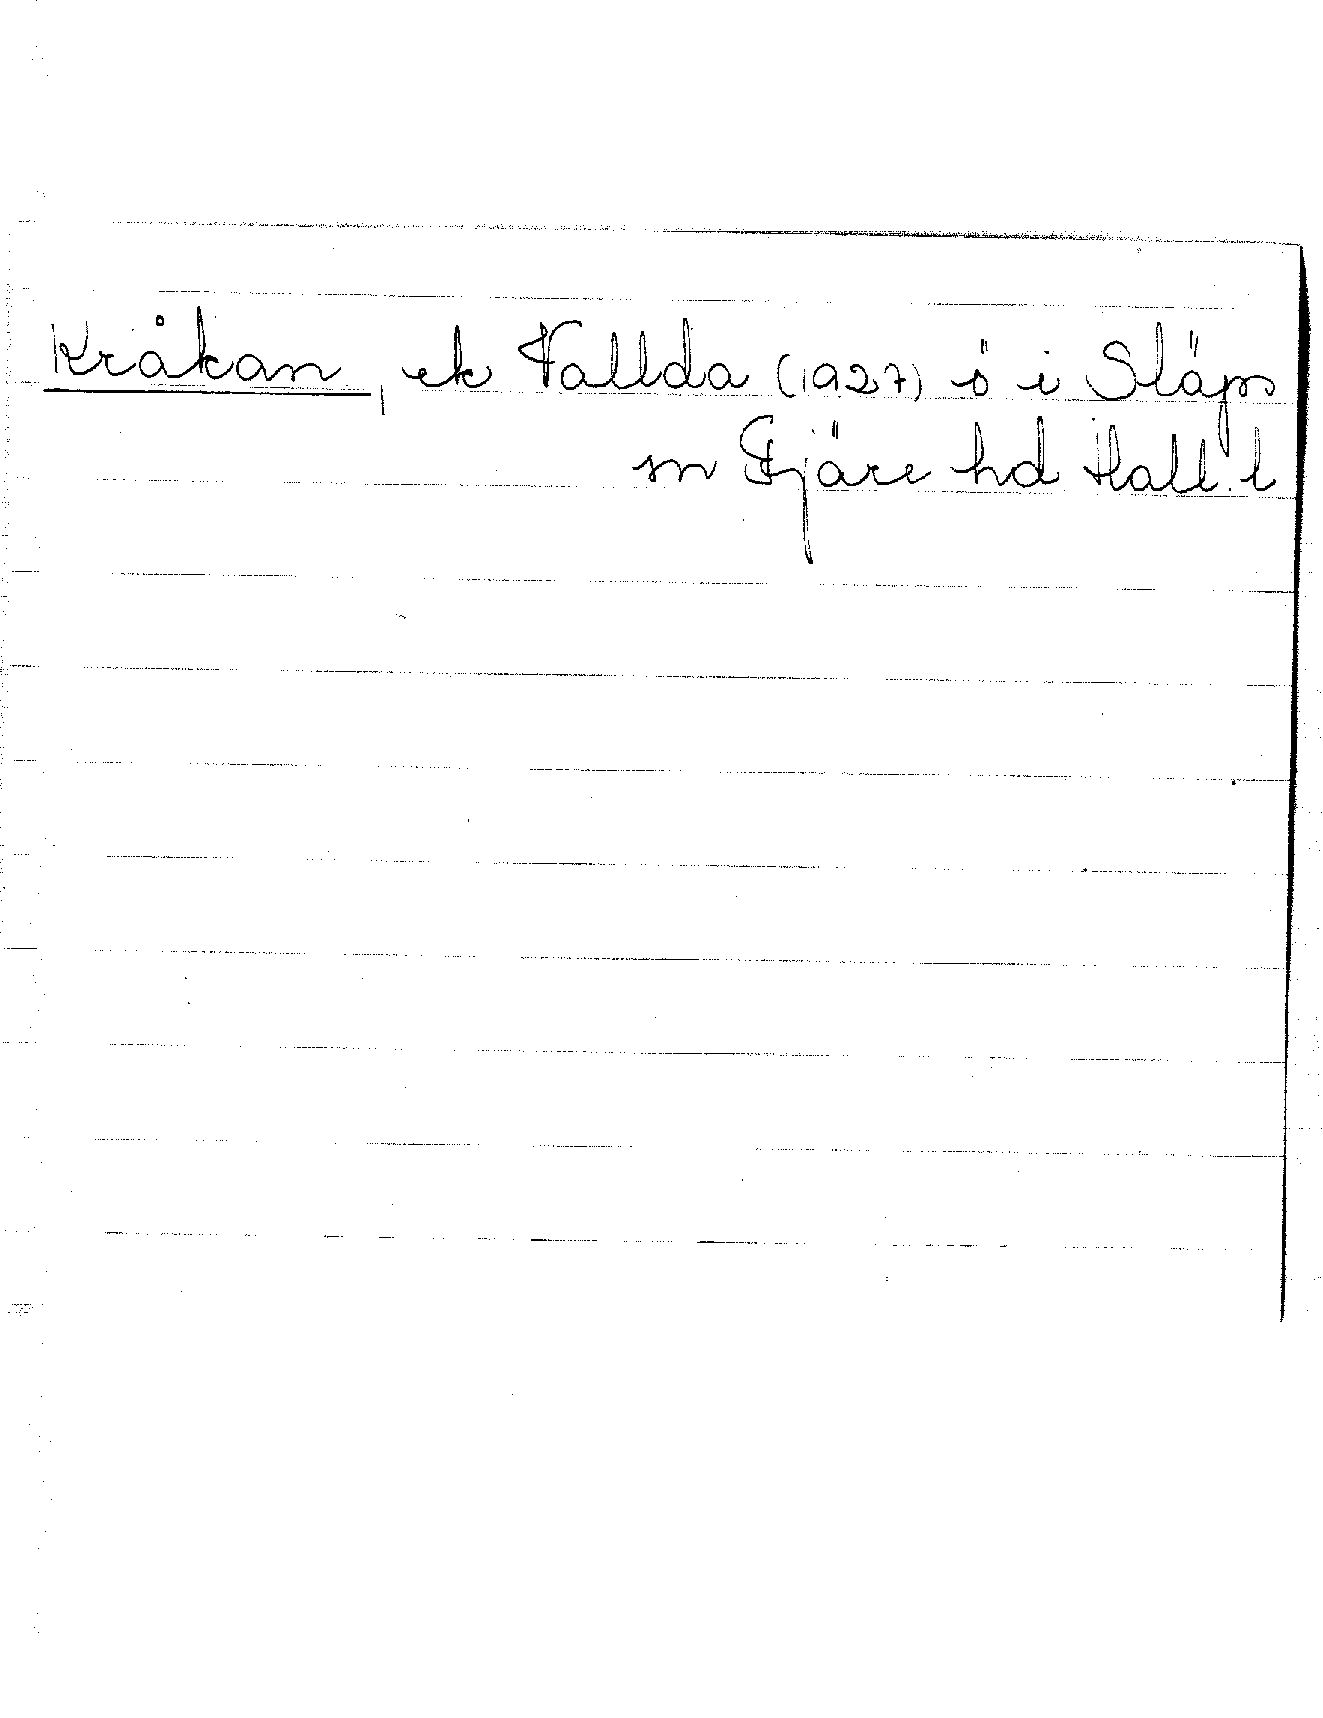 Kråkan, ek Vallda (1927) ö i Släps
sn Fjäre hd Hall. l